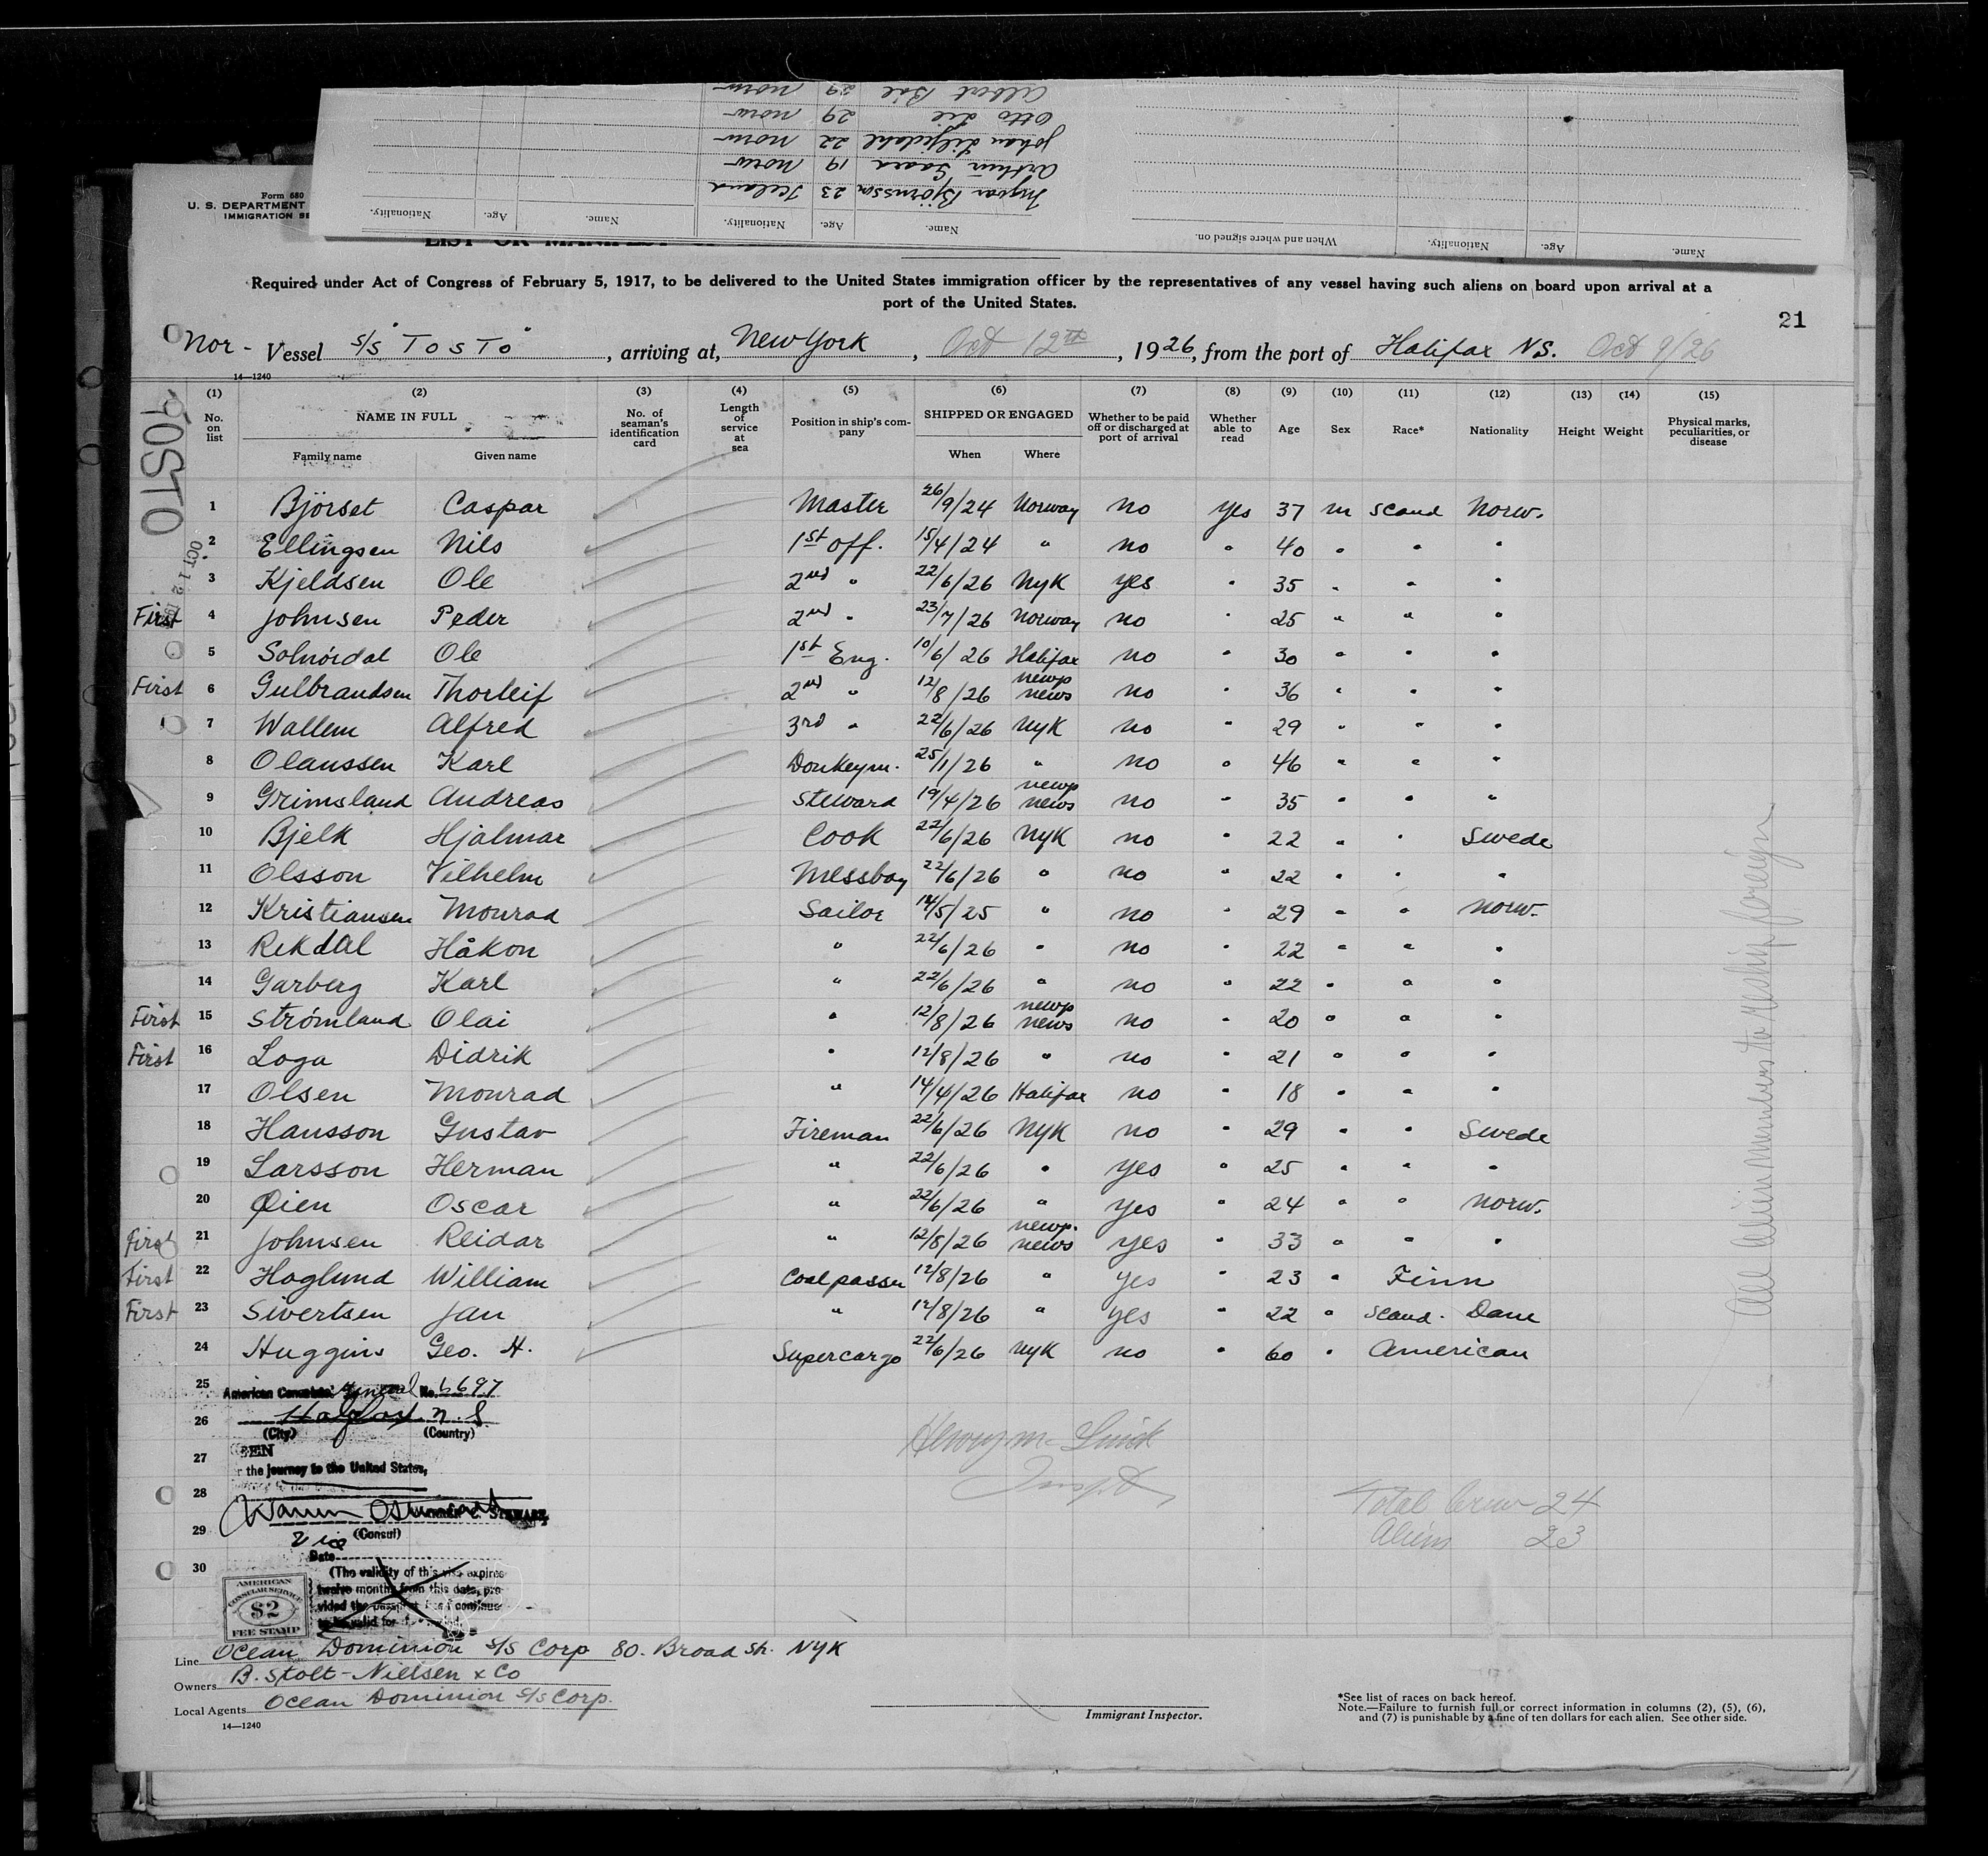 Albert Bae 29 norw
Otto Lie 29 norw
Johan Liljedahl 22 norw
Arthur Saara 19 norw
Ingvar Björnsson 23 Iceland
Name. Age. Nationality. Name. Age. Nationality. When and where signed on. Name. Age. Nationality.
Form 680
U. S. DEPARTMENT
IMMIGRATION SE
LIST OR MANIFEST
Required under Act of Congress of February 5, 1917, to be delivered to the United States immigration officer by the representatives of any vessel having such aliens on board upon arrival at a
port of the United States.
21
Nor- Vessel S/S "TOSTO", arriving at, New York, Oct 12th, 1926, from the port of Halifax NS. Oct 9/26
14—1240
TOSTO
OCT 12
(1) (2) (3) (4) (5) (6) (7) (8) (9) (10) (11) (12) (13) (14) (15)
No. on list NAME IN FULL Family name Given name No. of seaman's identification card Length of service at sea Position in ship's company SHIPPED OR ENGAGED When Where Whether to be paid off or discharged at port of arrival Whether able to read Age Sex Race* Nationality Height Weight Physical marks, peculiarities, or disease
1 Björset Caspar Master 26/9/24 Norway no yes 37 m scand Norw.
2 Ellingsen Nils 1st off. 15/4/24 " no " 40 " " "
3 Kjeldsen Ole 2nd " 22/6/26 NyK yes " 35 " " "
First 4 Johnsen Peder 2nd " 23/7/26 Norway no " 25 " " "
5 Solnördal Ole 1st Eng. 10/6/26 Halifax no " 30 " " "
First 6 Gulbrandsen Thorleif 2nd " 12/8/26 newp news no " 36 " " "
7 Wallem Alfred 3rd " 22/6/26 NyK no " 29 " " "
8 Olaussen Karl Donkeym. 25/1/26 " no " 46 " " "
9 Grimsland Andreas Steward 19/4/26 newp news no " 35 " " "
10 Bjelk Hjalmar Cook 22/6/26 NyK no " 22 " " Swede
11 Olsson Vilhelm Messboy 22/6/26 " no " 22 " " "
12 Kristiansen Monrad Sailor 14/5/25 " no " 29 " " norw.
13 Rekdal Håkon " 22/6/26 " no " 22 " " "
14 Garberg Karl " 22/6/26 " no " 22 " " "
First 15 Strömland Olai " 12/8/26 newp news no " 20 " " "
First 16 Loga Didrik " 12/8/26 " no " 21 " " "
17 Olsen Monrad " 14/4/26 Halifax no " 18 " " "
18 Hansson Gustav Fireman 22/6/26 NyK no " 29 " " Swede
19 Larsson Herman " 22/6/26 " yes " 25 " " "
20 Øien Oscar " 22/6/26 " yes " 24 " " norw.
First 21 Johnsen Reidar " 12/8/26 newp. news yes " 33 " " "
First 22 Hoglund William Coalpasser 12/8/26 " yes " 23 " Finn
First 23 Sivertsen Jan " 12/8/26 " yes " 22 " scand. Dane
24 Huggins Geo. H. Supercargo 22/6/26 NyK no " 60 " American
All alien members to reship foreign
25 American Consulate General No. 6697
26 Halifax N. S.
(City) (Country)
27 SEEN
r the journey to the United States,
28
29 (Consul)
Date
30 (The validity of this visa expires
twelve months from this date, pro
vided the passport continue
to be valid for
AMERICAN CONSULAR SERVICE $2 FEE STAMP
Total Crew 24
Aliens 23
Line Ocean Dominion S/S Corp 80. Broad St. NYK
Owners B. Stolt-Nielsen & Co
Local Agents Ocean Dominion S/S Corp.
14—1240
Immigrant Inspector.
*See list of races on back hereof.
Note.—Failure to furnish full or correct information in columns (2), (5), (6),
and (7) is punishable by a fine of ten dollars for each alien. See other side.